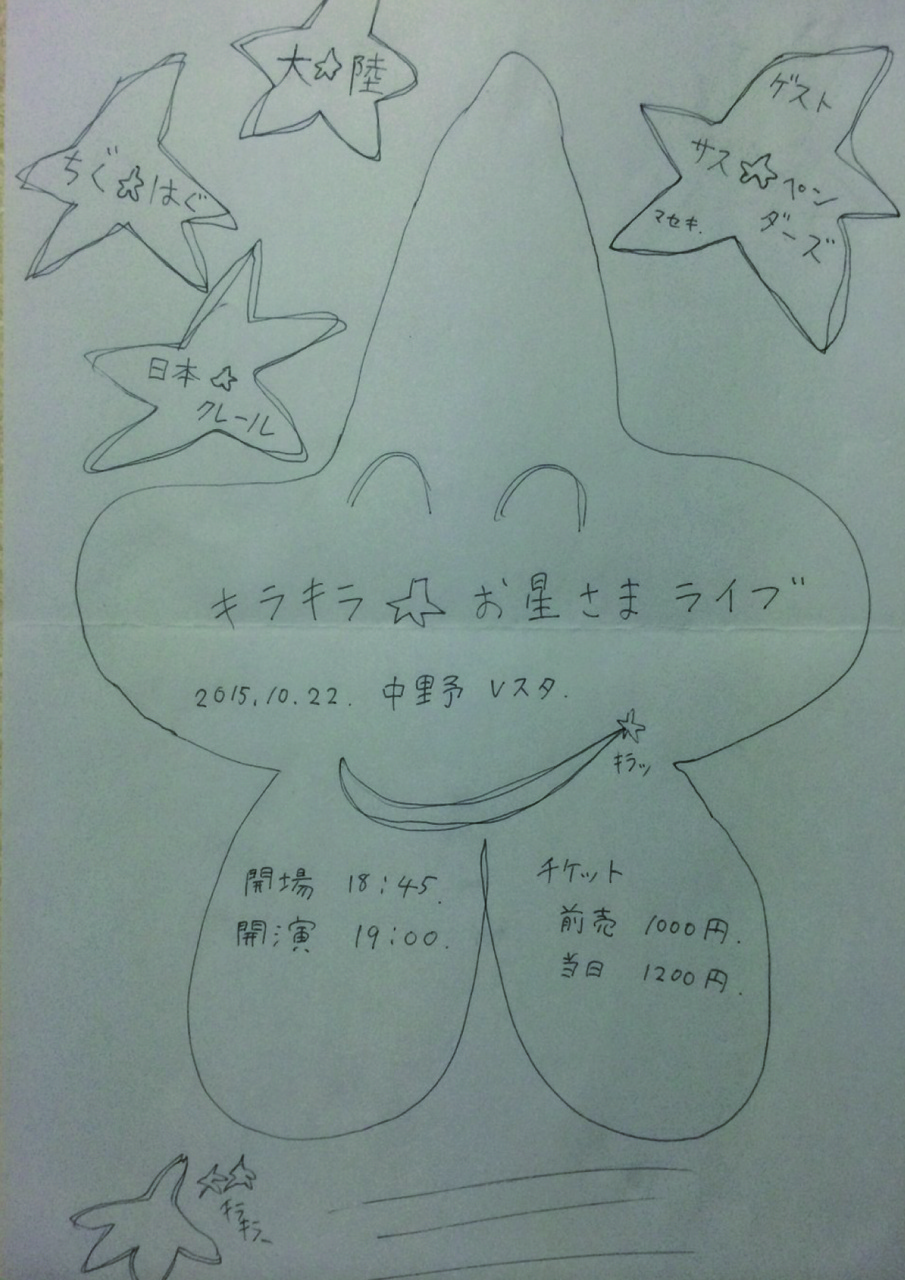 大☆陸
ちぐ☆はぐ
日本☆
クレール
ゲスト
サス☆ペン
ダーズ
マセキ.
キラキラ☆お星さまライブ
2015.10.22. 中野 Vスタ.
キラッ
開場 18:45.
開演 19:00.
チケット
前売 1000円.
当日 1200円.
☆☆
キラ
キラー